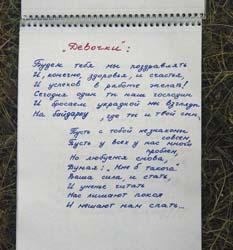 „Девочки":
Будем тебя мы поздравлять
И, конечно, здоровья, и счастья,
И успехов в работе желать!
Сегодня один ты наш господин
И бросаем украдкой мы взгляды
На байдарку, где ты и твой сын.
Пусть с тобой незнакомы
совсем,
Пусть у всех у нас много
проблем,
Но любуемся снова,
Думая: „Мне б такого"
Ваша сила, и стать,
И уменье читать
Нас лишают покоя
И мешают нам спать...